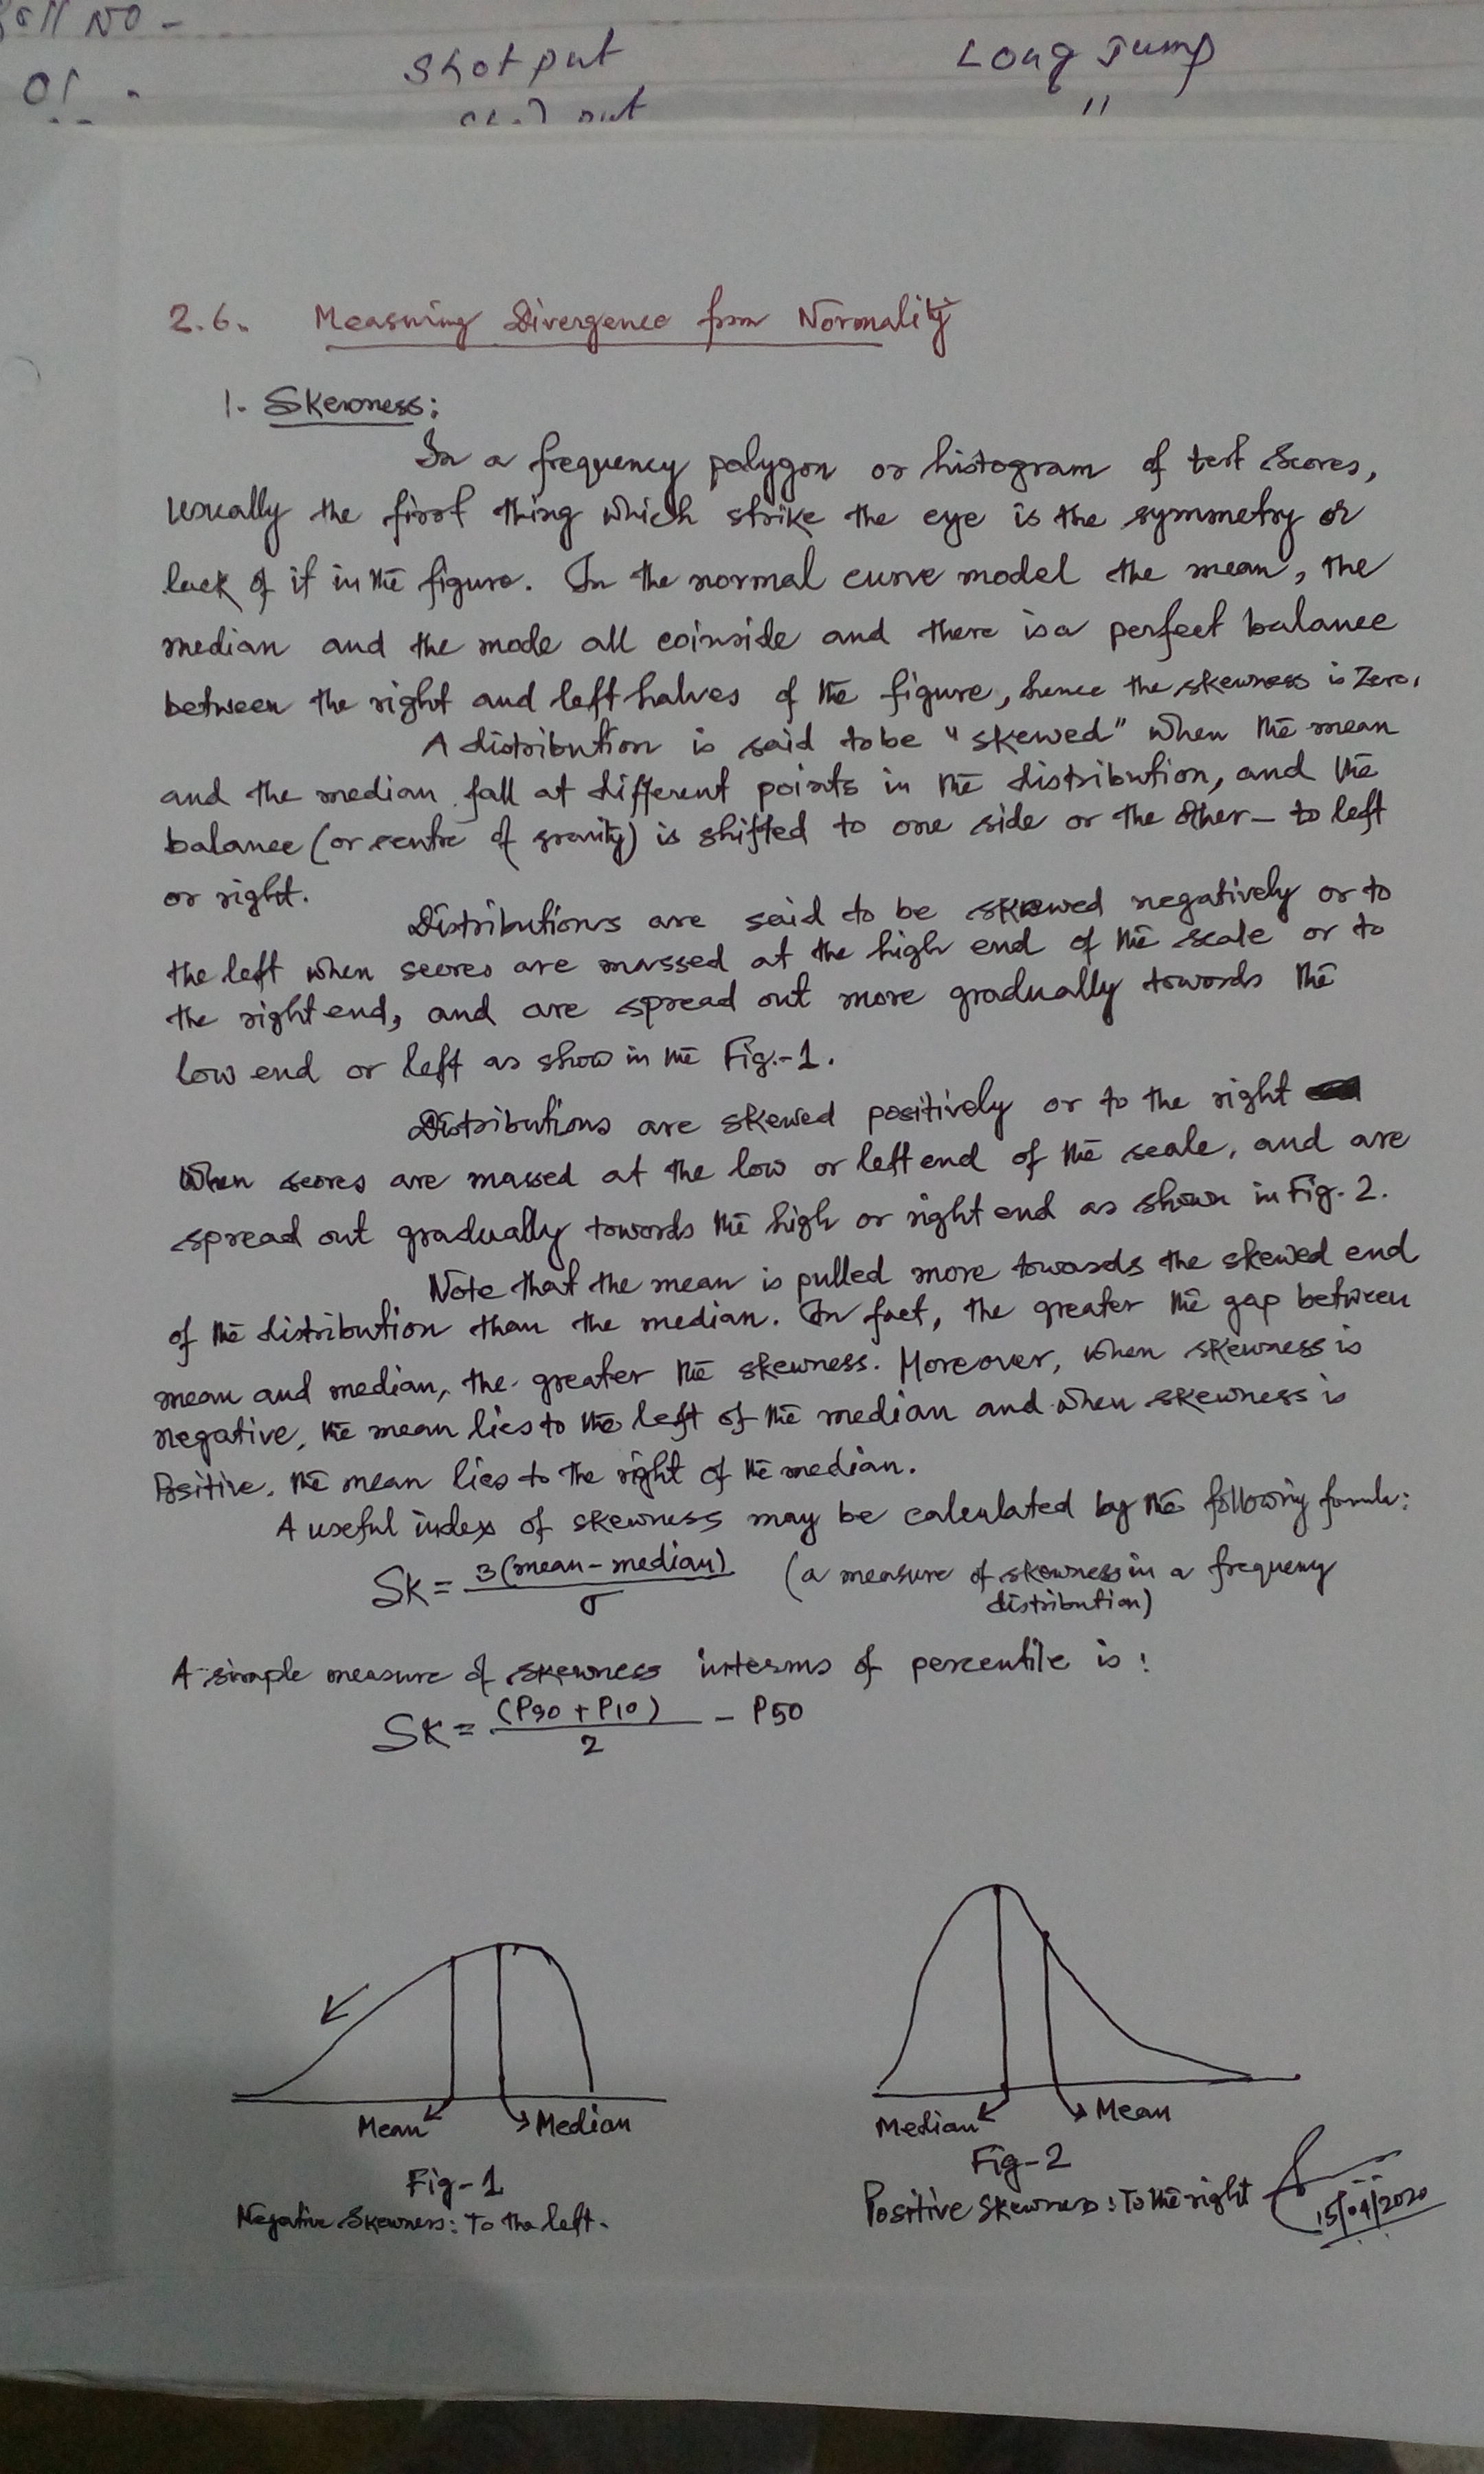 Roll No -
01 -
Shot put
Long Jump
"
2.6. Measuring Divergence from Normality
1. Skewness:
In a frequency polygon or histogram of test scores,
usually the first thing which strike the eye is the symmetry or
lack of it in the figure. In the normal curve model the mean, the
median and the mode all coinside and there is a perfect balance
between the right and left halves of the figure, hence the skewness is Zero.
A distribution is said to be "skewed" when the mean
and the median fall at different points in the distribution, and the
balance (or centre of gravity) is shifted to one side or the other - to left
or right.
Distributions are said to be skewed negatively or to
the left when scores are massed at the high end of the scale or to
the right end, and are spread out more gradually towords the
low end or left as show in the Fig.-1.
Distributions are skewed positively or to the right
when scores are massed at the low or left end of the scale, and are
spread out gradually towords the high or right end as shown in Fig. 2.
Note that the mean is pulled more towards the skewed end
of the distribution than the median. In fact, the greater the gap between
mean and median, the greater the skewness. Moreover, when skewness is
negative, the mean lies to the left of the median and when skewness is
Positive, the mean lies to the right of the median.
A useful index of skewness may be calculated by the following formula:
Sk = 3(mean - median) / σ (a measure of skewness in a frequency
distribution)
A simple measure of skewness interms of percentile is:
Sk = (P90 + P10) / 2 - P50
Mean Median
Fig-1
Negative Skewness: To the left.
Median Mean
Fig-2
Positive Skewness: To the right
15/04/2020